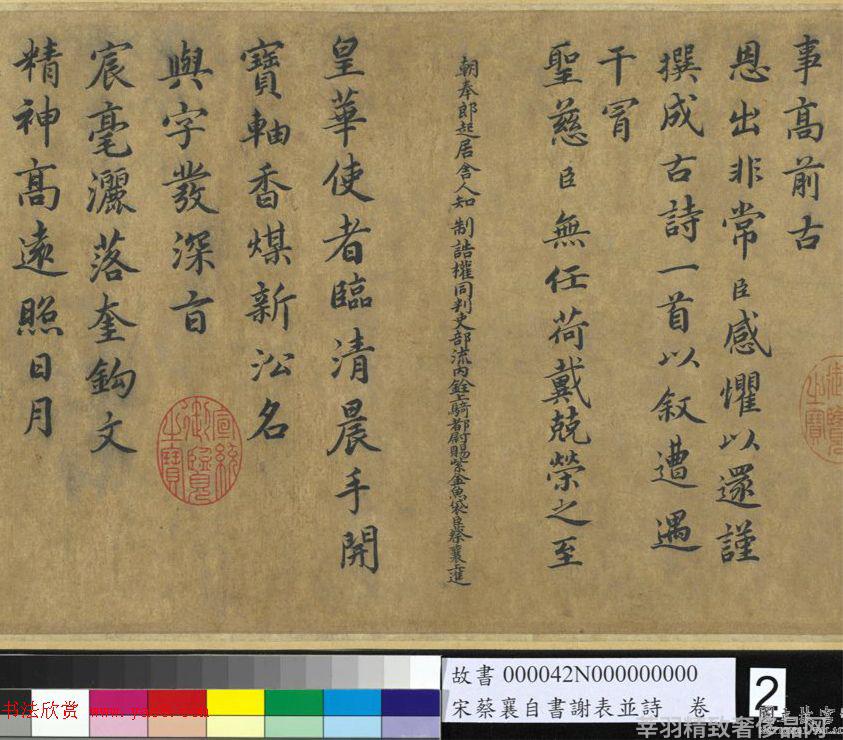 事高前古
恩出非常臣感懼以還謹
撰成古詩一首以叙遭遇
干冐
聖慈臣無任荷戴兢榮之至
朝奉郎起居舍人知制誥權同判吏部流內銓上騎都尉賜紫金魚袋臣蔡襄上進
皇華使者臨清晨手開
寶軸香煤新沿名
與字發深㫖
宸毫灑落奎鈎文
精神髙遠照日月
宣統
御覽
之寶
御覽
之寶
故書 000042N000000000
宋蔡襄自書謝表並詩 卷
2
书法欣赏
幸羽精致奢修品网